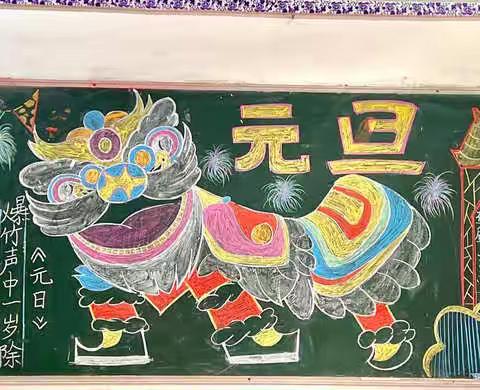 元旦
《元日》
爆竹声中一岁除